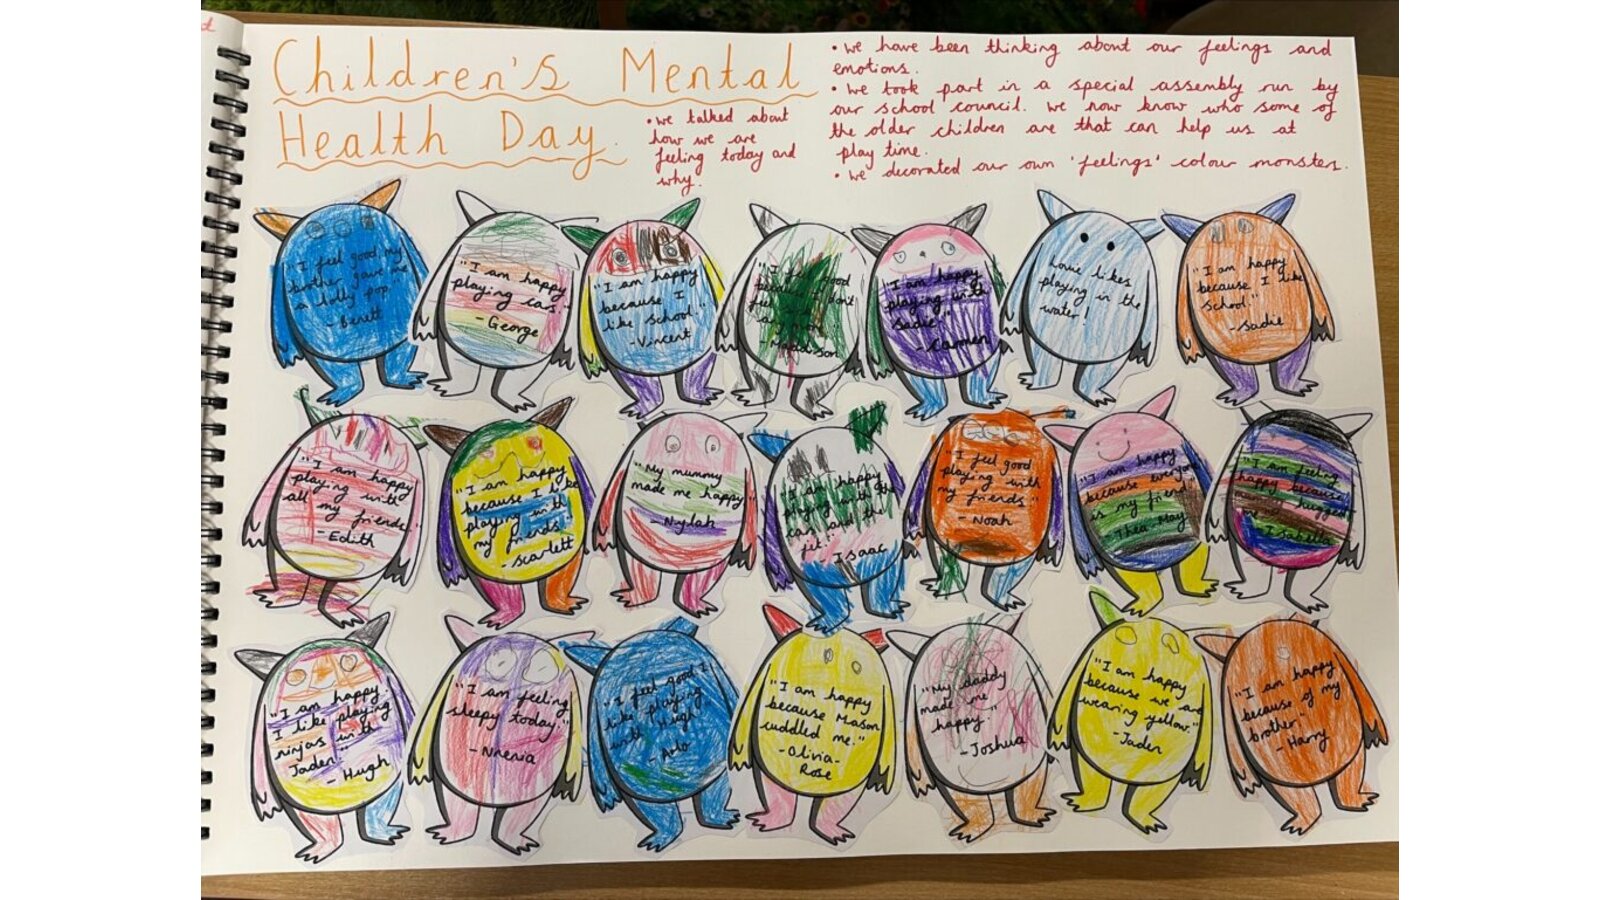 Children's Mental
Health Day.
• we talked about
how we are
feeling today and
why.
• we have been thinking about our feelings and
emotions.
• we took part in a special assembly run by
our school council. We now know who some of
the older children are that can help us at
play time.
• we decorated our own 'feelings' colour monsters.
"I feel good my
brother gave me
a lolly pop."
- Benett
"I am happy
playing cars."
- George
"I am happy
because I
like school."
- Vincent
good
because I don't
feel
any more."
- Maddison
"I am happy
playing with
Sadie."
- Carmen
Louie likes
playing in the
water!
"I am happy
because I like
school."
- Sadie
"I am happy
playing with
all my friends."
- Edith
"I am happy
because I like
playing with
my friends."
- Scarlett
"My mummy
made me happy"
- Nylah
"I am happy
playing with the
cars and the
jet."
- Isaac
"I feel good
playing with
my friends."
- Noah
"I am happy
because everyone
is my friend"
- Thea-May
"I am feeling
happy because
hugged
me."
- Isabella
"I am happy.
I like playing
ninjas with
Jaden."
- Hugh
"I am feeling
sleepy today."
- Nnenia
"I feel good I
like playing
with Hugh"
- Arlo
"I am happy
because Mason
cuddled me."
- Olivia-
Rose
"My daddy
made me
happy."
- Joshua
"I am happy
because we are
wearing yellow."
- Jaden
"I am happy
because of my
brother"
- Harry